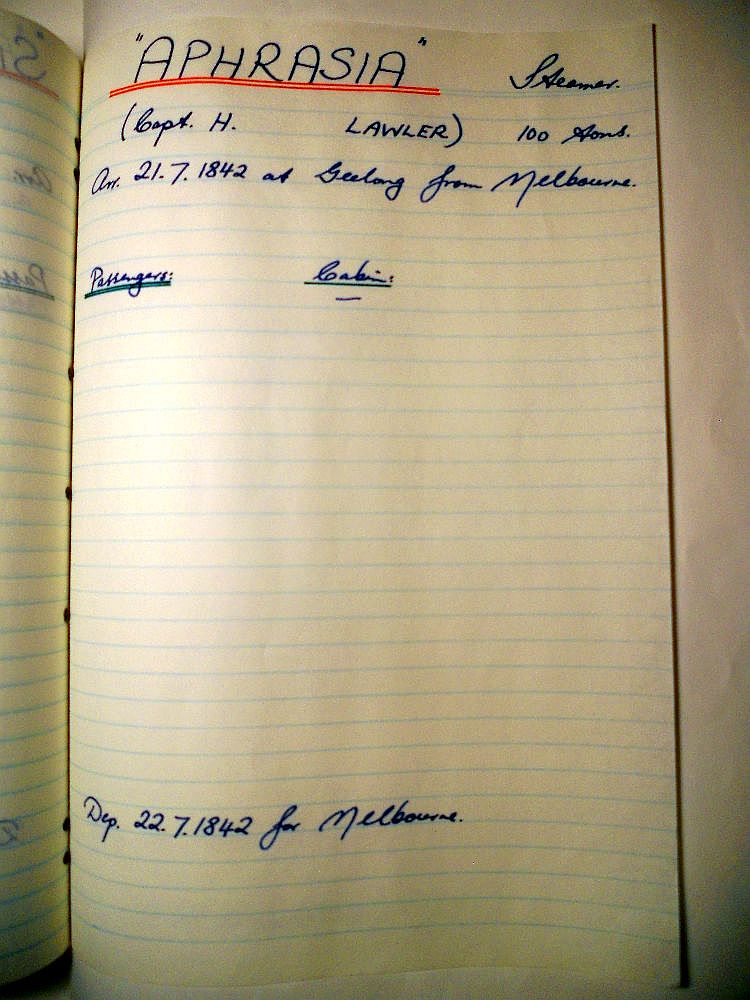 "APHRASIA" Steamer.
(Capt. H. LAWLER) 100 tons.
Arr. 21.7.1842 at Geelong from Melbourne.
Passengers: Cabin:
—
Dep. 22.7.1842 for Melbourne.